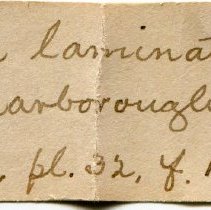 laminat
arborough
, pl. 32, f. 1